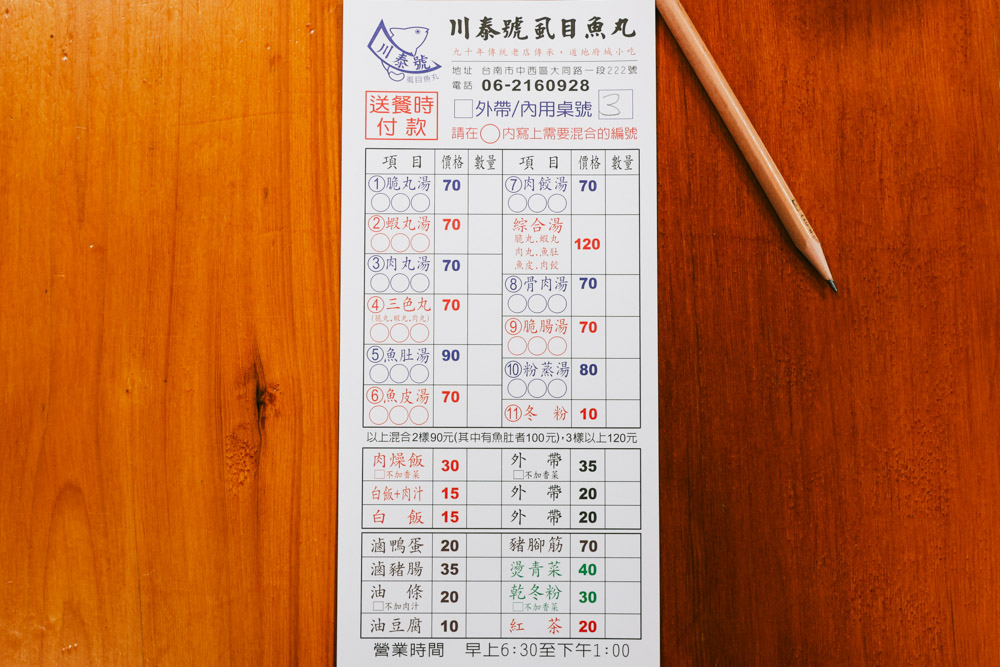 川泰號虱目魚丸
川泰號
虱目魚丸
九十年傳統老店傳承，道地府城小吃
地址 台南市中西區大同路一段222號
電話 06-2160928
送餐時
付款
□外帶/內用桌號 3
請在○內寫上需要混合的編號
項目 價格 數量 項目 價格 數量
①脆丸湯 70 ⑦肉餃湯 70
②蝦丸湯 70 綜合湯 120
脆丸.蝦丸
肉丸.魚肚
魚皮.肉餃
③肉丸湯 70 ⑧骨肉湯 70
④三色丸 70 ⑨脆腸湯 70
(脆丸.蝦丸.肉丸)
⑤魚肚湯 90 ⑩粉蒸湯 80
⑥魚皮湯 70 ⑪冬粉 10
以上混合2樣90元(其中有魚肚者100元)，3樣以上120元
肉燥飯 30 外帶 35
□不加香菜 □不加香菜
白飯+肉汁 15 外帶 20
白飯 15 外帶 20
滷鴨蛋 20 豬腳筋 70
滷豬腸 35 燙青菜 40
油條 20 乾冬粉 30
□不加肉汁 □不加香菜
油豆腐 10 紅茶 20
營業時間 早上6:30至下午1:00